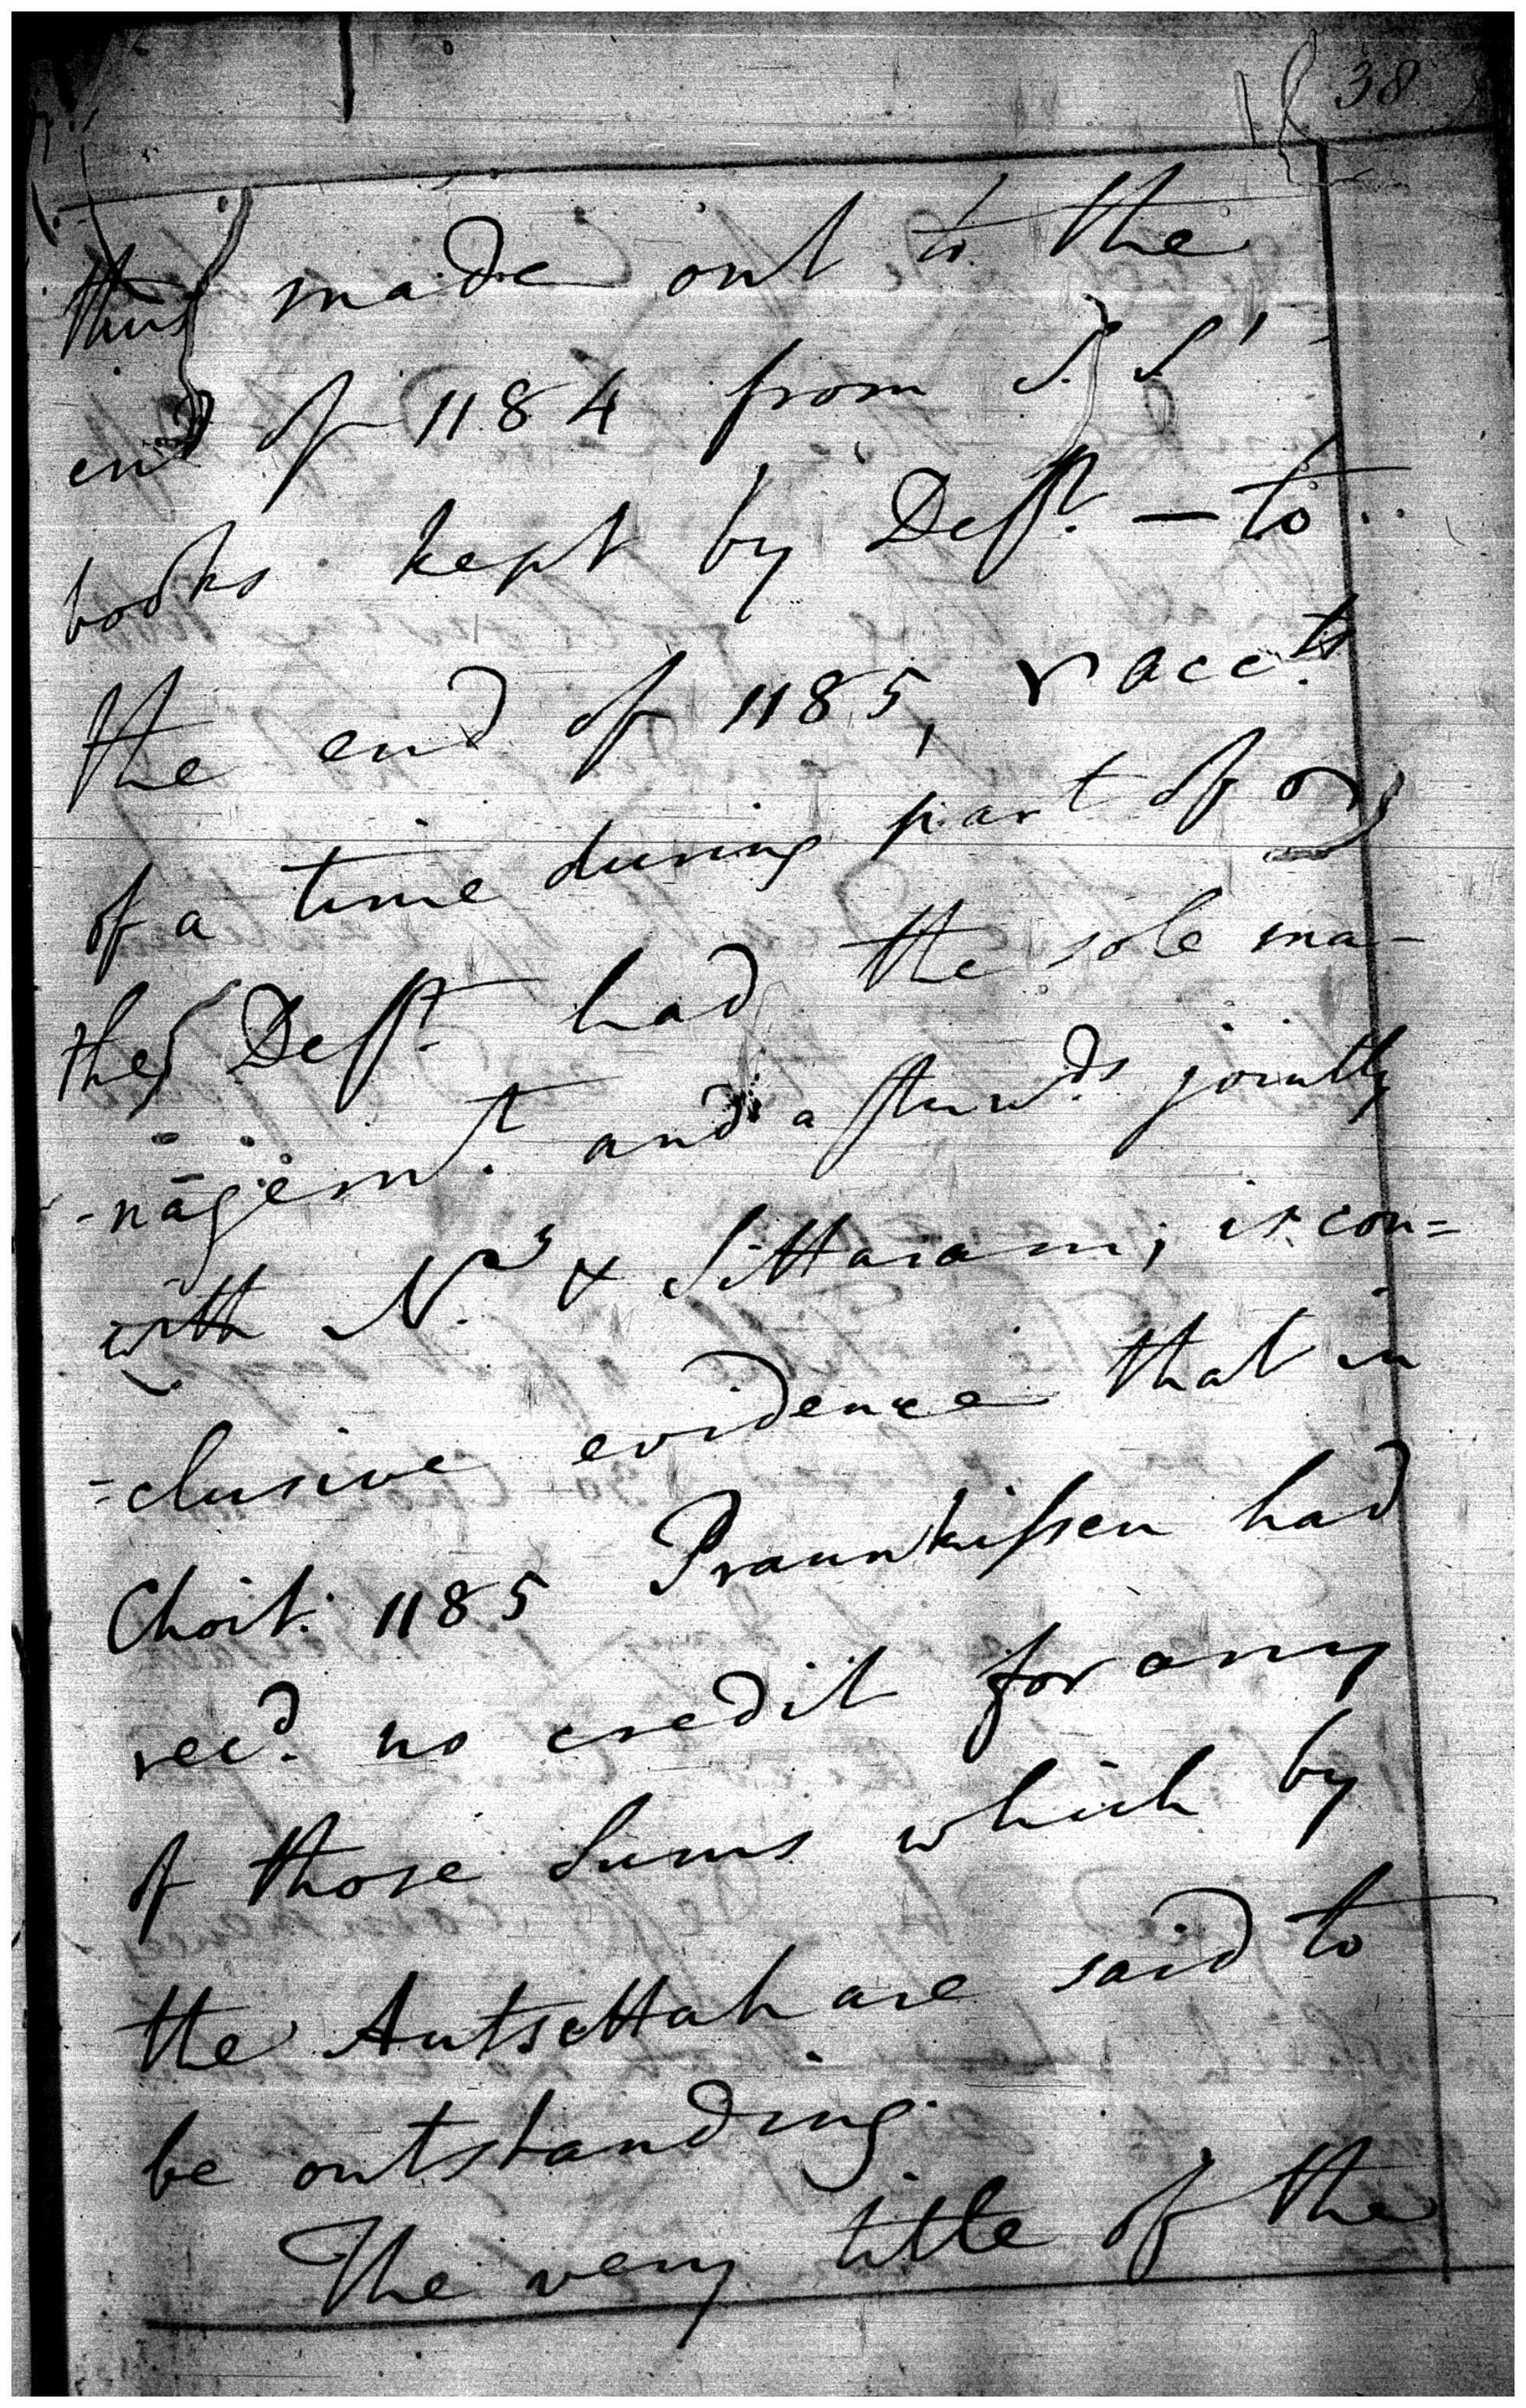 38
thus made out to the
end of 1184 from S. S'
books kept by Deft. — to
the end of 1185, & acc.ts
of a time during part of
the Deft. had the sole ma-
-nagem.t and afterw.ds jointly
with N.3 & Sittaram; is con=
=clusive evidence that in
Choit. 1185 Praunkissen had
rec.d no credit for any
of those Sums which by
the Autsettah are said to
be outstanding.
The very title of the